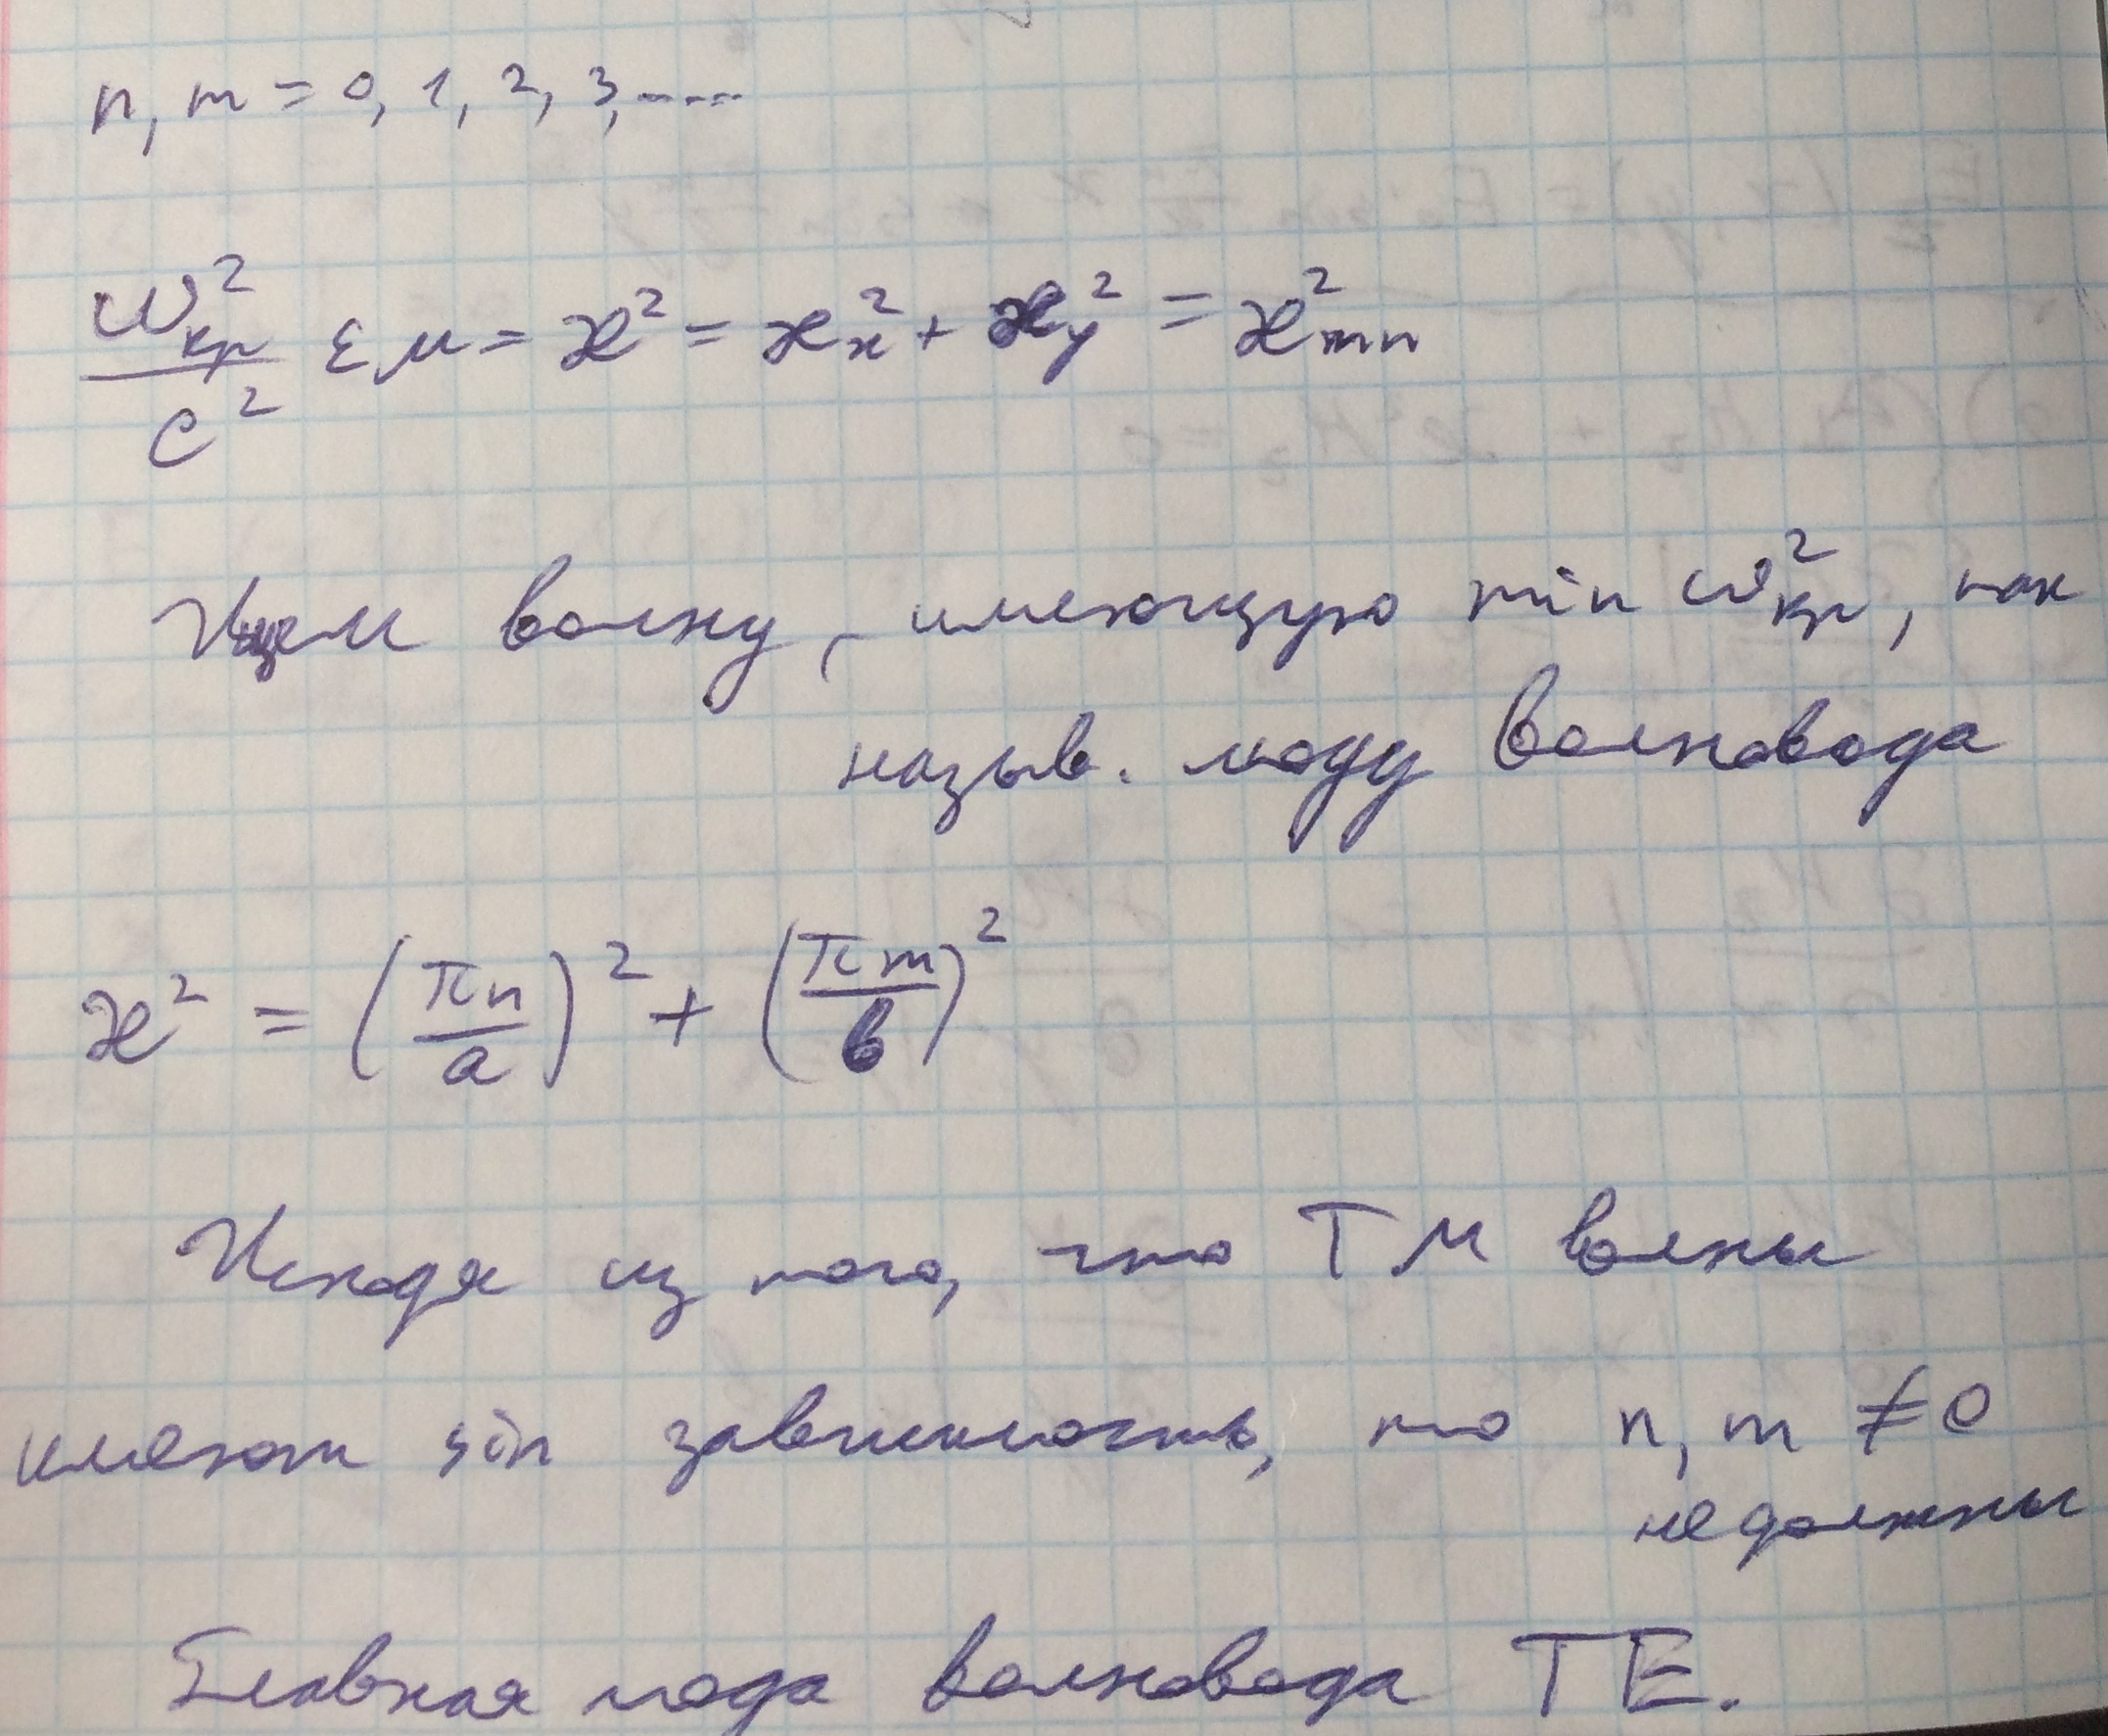 n, m = 0, 1, 2, 3, ....
ω²кр/c² εμ = æ² = æ²x + æ²y = æ²mn
Ищем волну, имеющую min ω²кр, так
назыв. моду волновода
æ² = (πn/a)² + (πm/b)²
Исходя из того, что TM волны
имеют sin зависимость, то n, m ≠ 0
не должны
Главная мода волновода TE.